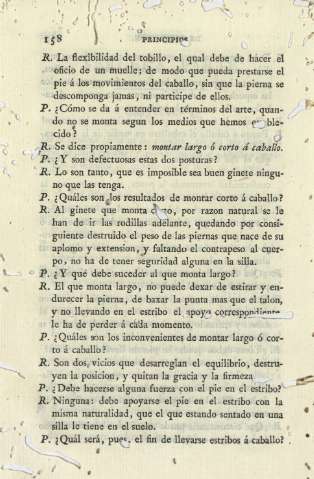 158 PRINCIPIOS
R. La flexîbilidad del tobillo, el qual debe de hacer el
oficio de un muelle; de modo que pueda prestarse el
pie á los movimientos del caballo, sin que la pierna se
descomponga jamas, ni participe de ellos.
P. ¿Cómo se da á entender en términos del arte, quan-
do no se monta segun los medios que hemos estable-
cido?
R. Se dice propiamente: montar largo ó corto á caballo.
P. ¿Y son defectuosas estas dos posturas?
R. Lo son tanto, que es imposible sea buen ginete ningu-
no que las tenga.
P. ¿Quáles son los resultados de montar corto á caballo?
R. Al ginete que monta corto, por razon natural se le
han de ir las rodillas adelante, quedando por consi-
guiente destruido el peso de las piernas que nace de su
aplomo y extension, y faltando el contrapeso al cuer-
po, no ha de tener seguridad alguna en la silla.
P. ¿Y qué debe suceder al que monta largo?
R. El que monta largo, no puede dexar de estirar y en-
durecer la pierna, de baxar la punta mas que el talon,
y no llevando en el estribo el apoyo correspondiente
le ha de perder á cada momento.
P. ¿Quáles son los inconvenientes de montar largo ó cor-
to á caballo?
R. Son dos vicios que desarreglan el equilibrio, destru-
yen la posicion, y quitan la gracia y la firmeza
P. ¿Debe hacerse alguna fuerza con el pie en el estribo?
R. Ninguna: debe apoyarse el pie en el estribo con la
misma naturalidad, que el que estando sentado en una
silla le tiene en el suelo.
P. ¿Quál será, pues, el fin de llevarse estribos á caballo?